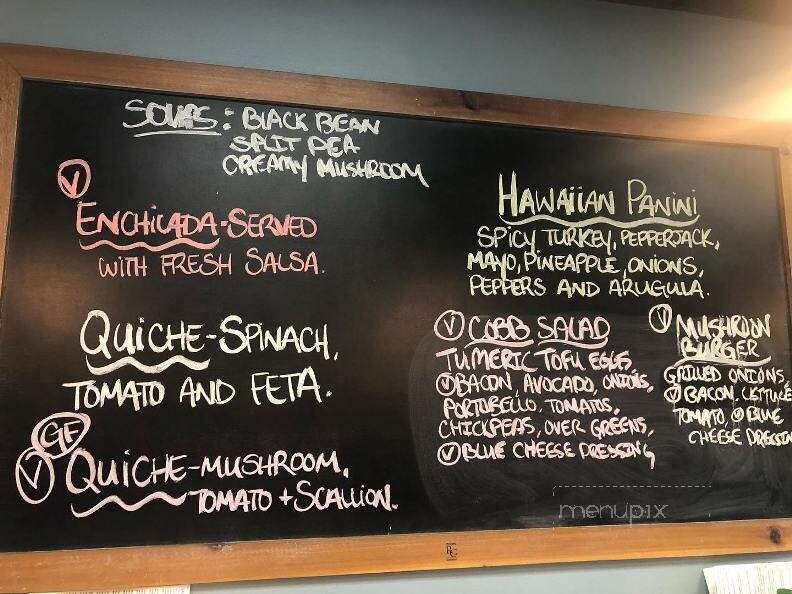 SOUPS: BLACK BEAN
SPLIT PEA
CREAMY MUSHROOM
V
ENCHILADA-SERVED
WITH FRESH SALSA.
QUICHE-SPINACH,
TOMATO AND FETA.
GF
V QUICHE-MUSHROOM,
TOMATO + SCALLION.
HAWAIIAN PANINI
SPICY TURKEY, PEPPERJACK,
MAYO, PINEAPPLE, ONIONS,
PEPPERS AND ARUGULA.
V COBB SALAD
TUMERIC TOFU EGGS
V BACON, AVOCADO, ONIONS,
PORTOBELLO, TOMATOS,
CHICKPEAS, OVER GREENS,
V BLUE CHEESE DRESSING
V MUSHROON
BURGER
GRILLED ONIONS
V BACON, LETTUCE
TOMATO, V BLUE
CHEESE DRESSIN
menupix